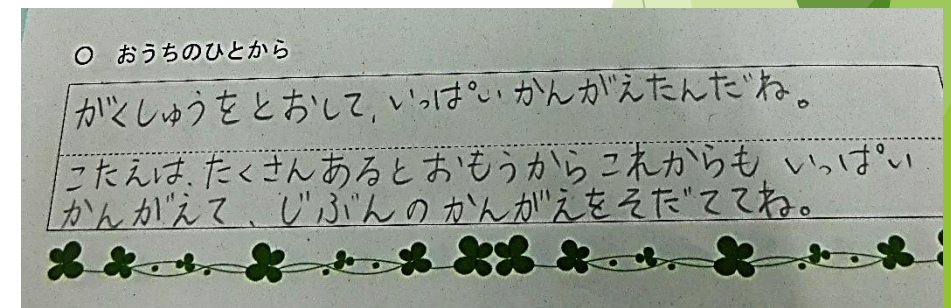 ○ おうちのひとから
がくしゅうをとおして、いっぱいかんがえたんだね。
こたえは、たくさんあるとおもうからこれからも いっぱい
かんがえて、じぶんのかんがえをそだててね。